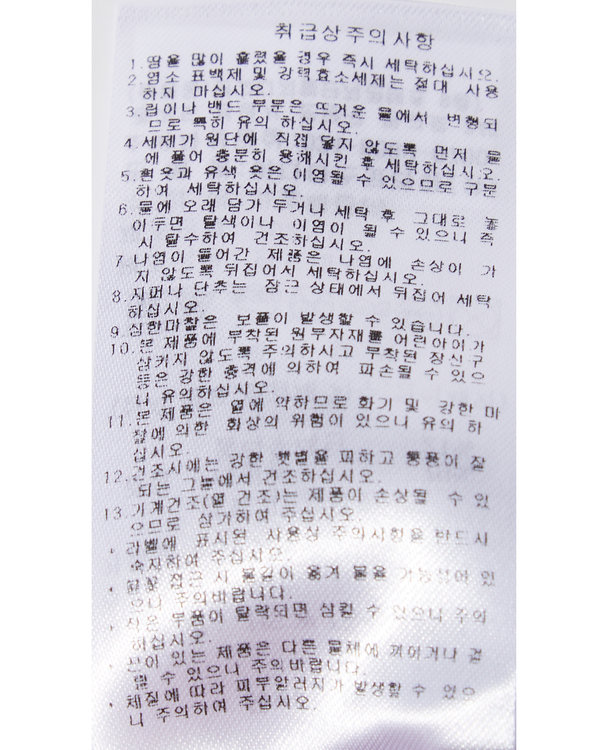 취급상주의사항
1.땀을 많이 흘렸을 경우 즉시 세탁하십시오.
2.염소 표백제 및 강력효소세제는 절대 사용
하지 마십시오.
3.립이나 밴드 부분은 뜨거운 물에서 변형되
므로 특히 유의 하십시오.
4.세제가 원단에 직접 닿지 않도록 먼저 물
에 풀어 충분히 용해시킨 후 세탁하십시오.
5.흰옷과 유색 옷은 이염될 수 있으므로 구분
하여 세탁하십시오.
6.물에 오래 담가 두거나 세탁 후 그대로 놓
아두면 탈색이나 이염이 될 수 있으니 즉
시 탈수하여 건조하십시오.
7.나염이 들어간 제품은 나염에 손상이 가
지 않도록 뒤집어서 세탁하십시오.
8.지퍼나 단추는 잠근 상태에서 뒤집어 세탁
하십시오.
9.심한마찰은 보풀이 발생할 수 있습니다.
10.본 제품에 부착된 원부자재를 어린아이가
삼키지 않도록 주의하시고 부착된 장신구
등은 강한 충격에 의하여 파손될 수 있으
니 유의하십시오.
11.본 제품은 열에 약하므로 화기 및 강한 마
찰에 의한 화상의 위험이 있으니 유의 하
십시오.
12.건조시에는 강한 햇볕을 피하고 통풍이 잘
되는 그늘에서 건조하십시오.
13.기계건조(열 건조)는 제품이 손상될 수 있
으므로 삼가하여 주십시오.
· 라벨에 표시된 사용상 주의사항을 반드시
숙지하여 주십시오.
· 불꽃 접근 시 불길이 옮겨 붙을 가능성이 있
으니 주의바랍니다.
· 작은 부품이 탈락되면 삼킬 수 있으니 주의
하십시오.
· 끈이 있는 제품은 다른 물체에 끼이거나 걸
릴 수 있으니 주의바랍니다.
· 체질에 따라 피부알러지가 발생할 수 있으
니 주의하여 주십시오.